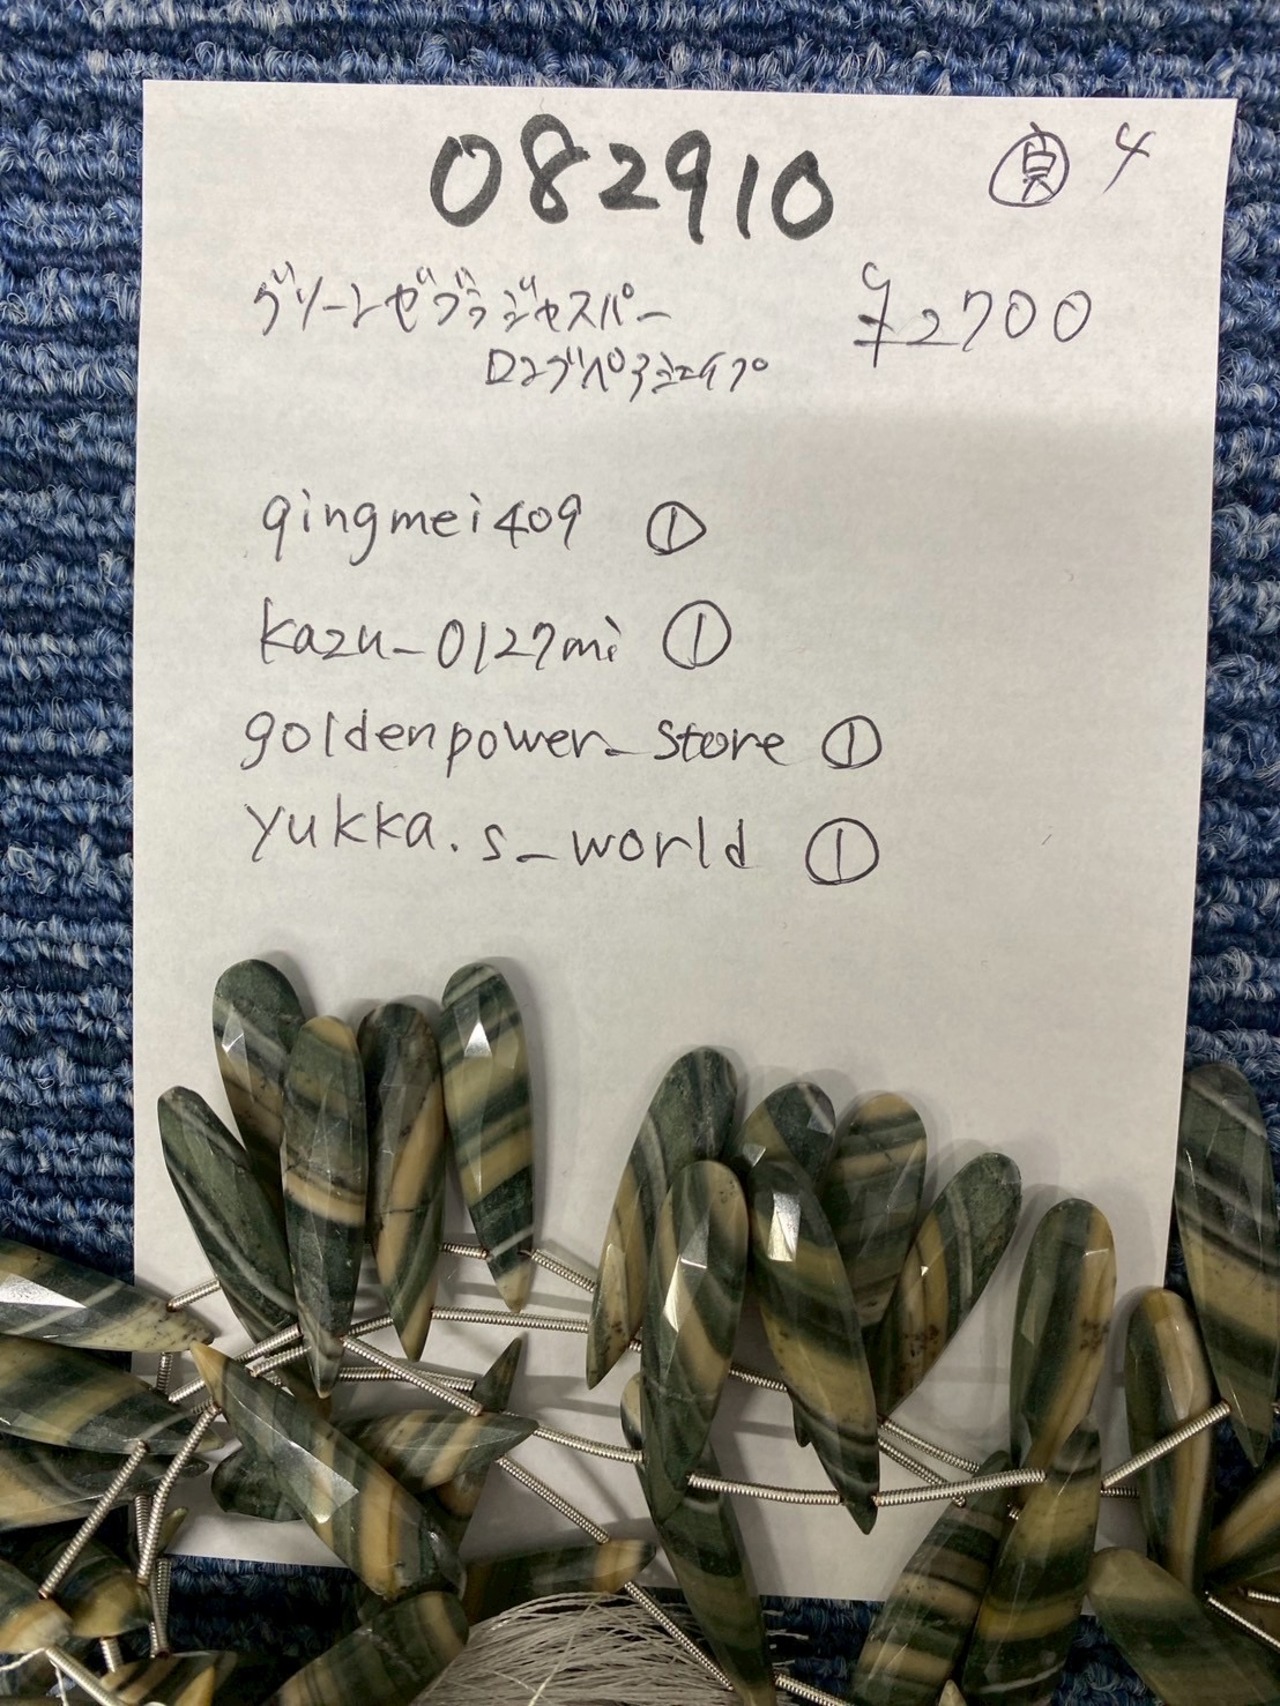 082910 貞 4
グリーンゼブラジャスパー ¥2700
ロングペアシェイプ
qingmei409 ①
kazu_0127mi ①
goldenpower_store ①
yukka.s_world ①